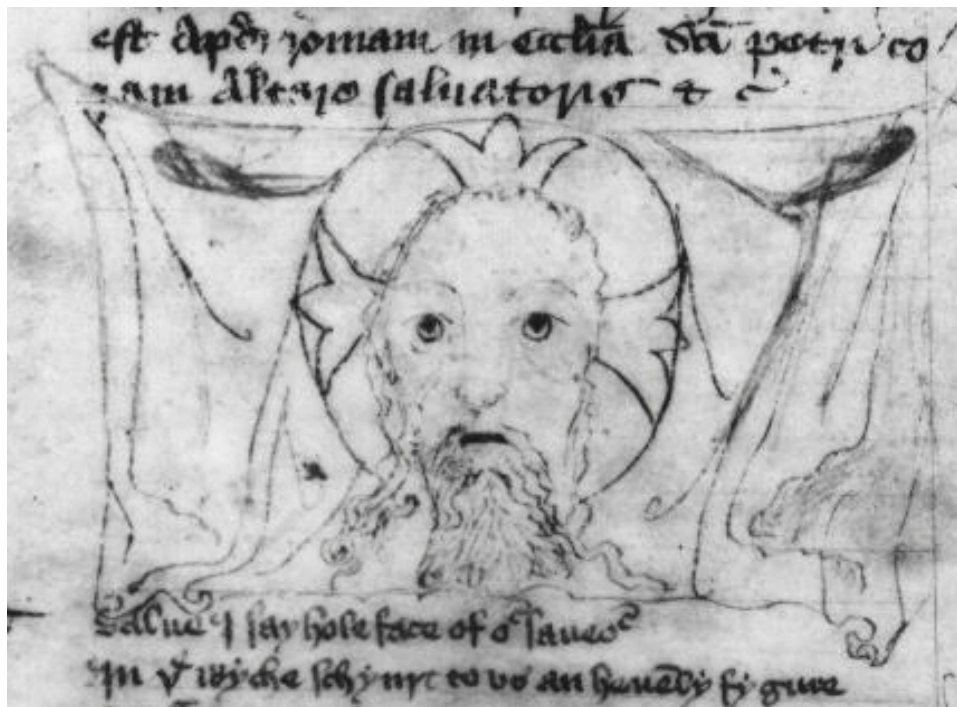 est apd romam in ecclia sci petri co
ram altare salvatoris &
Salue I say hole face of oʳ saueoʳ
In þͤ wyche schynit to us an heuēly fygure